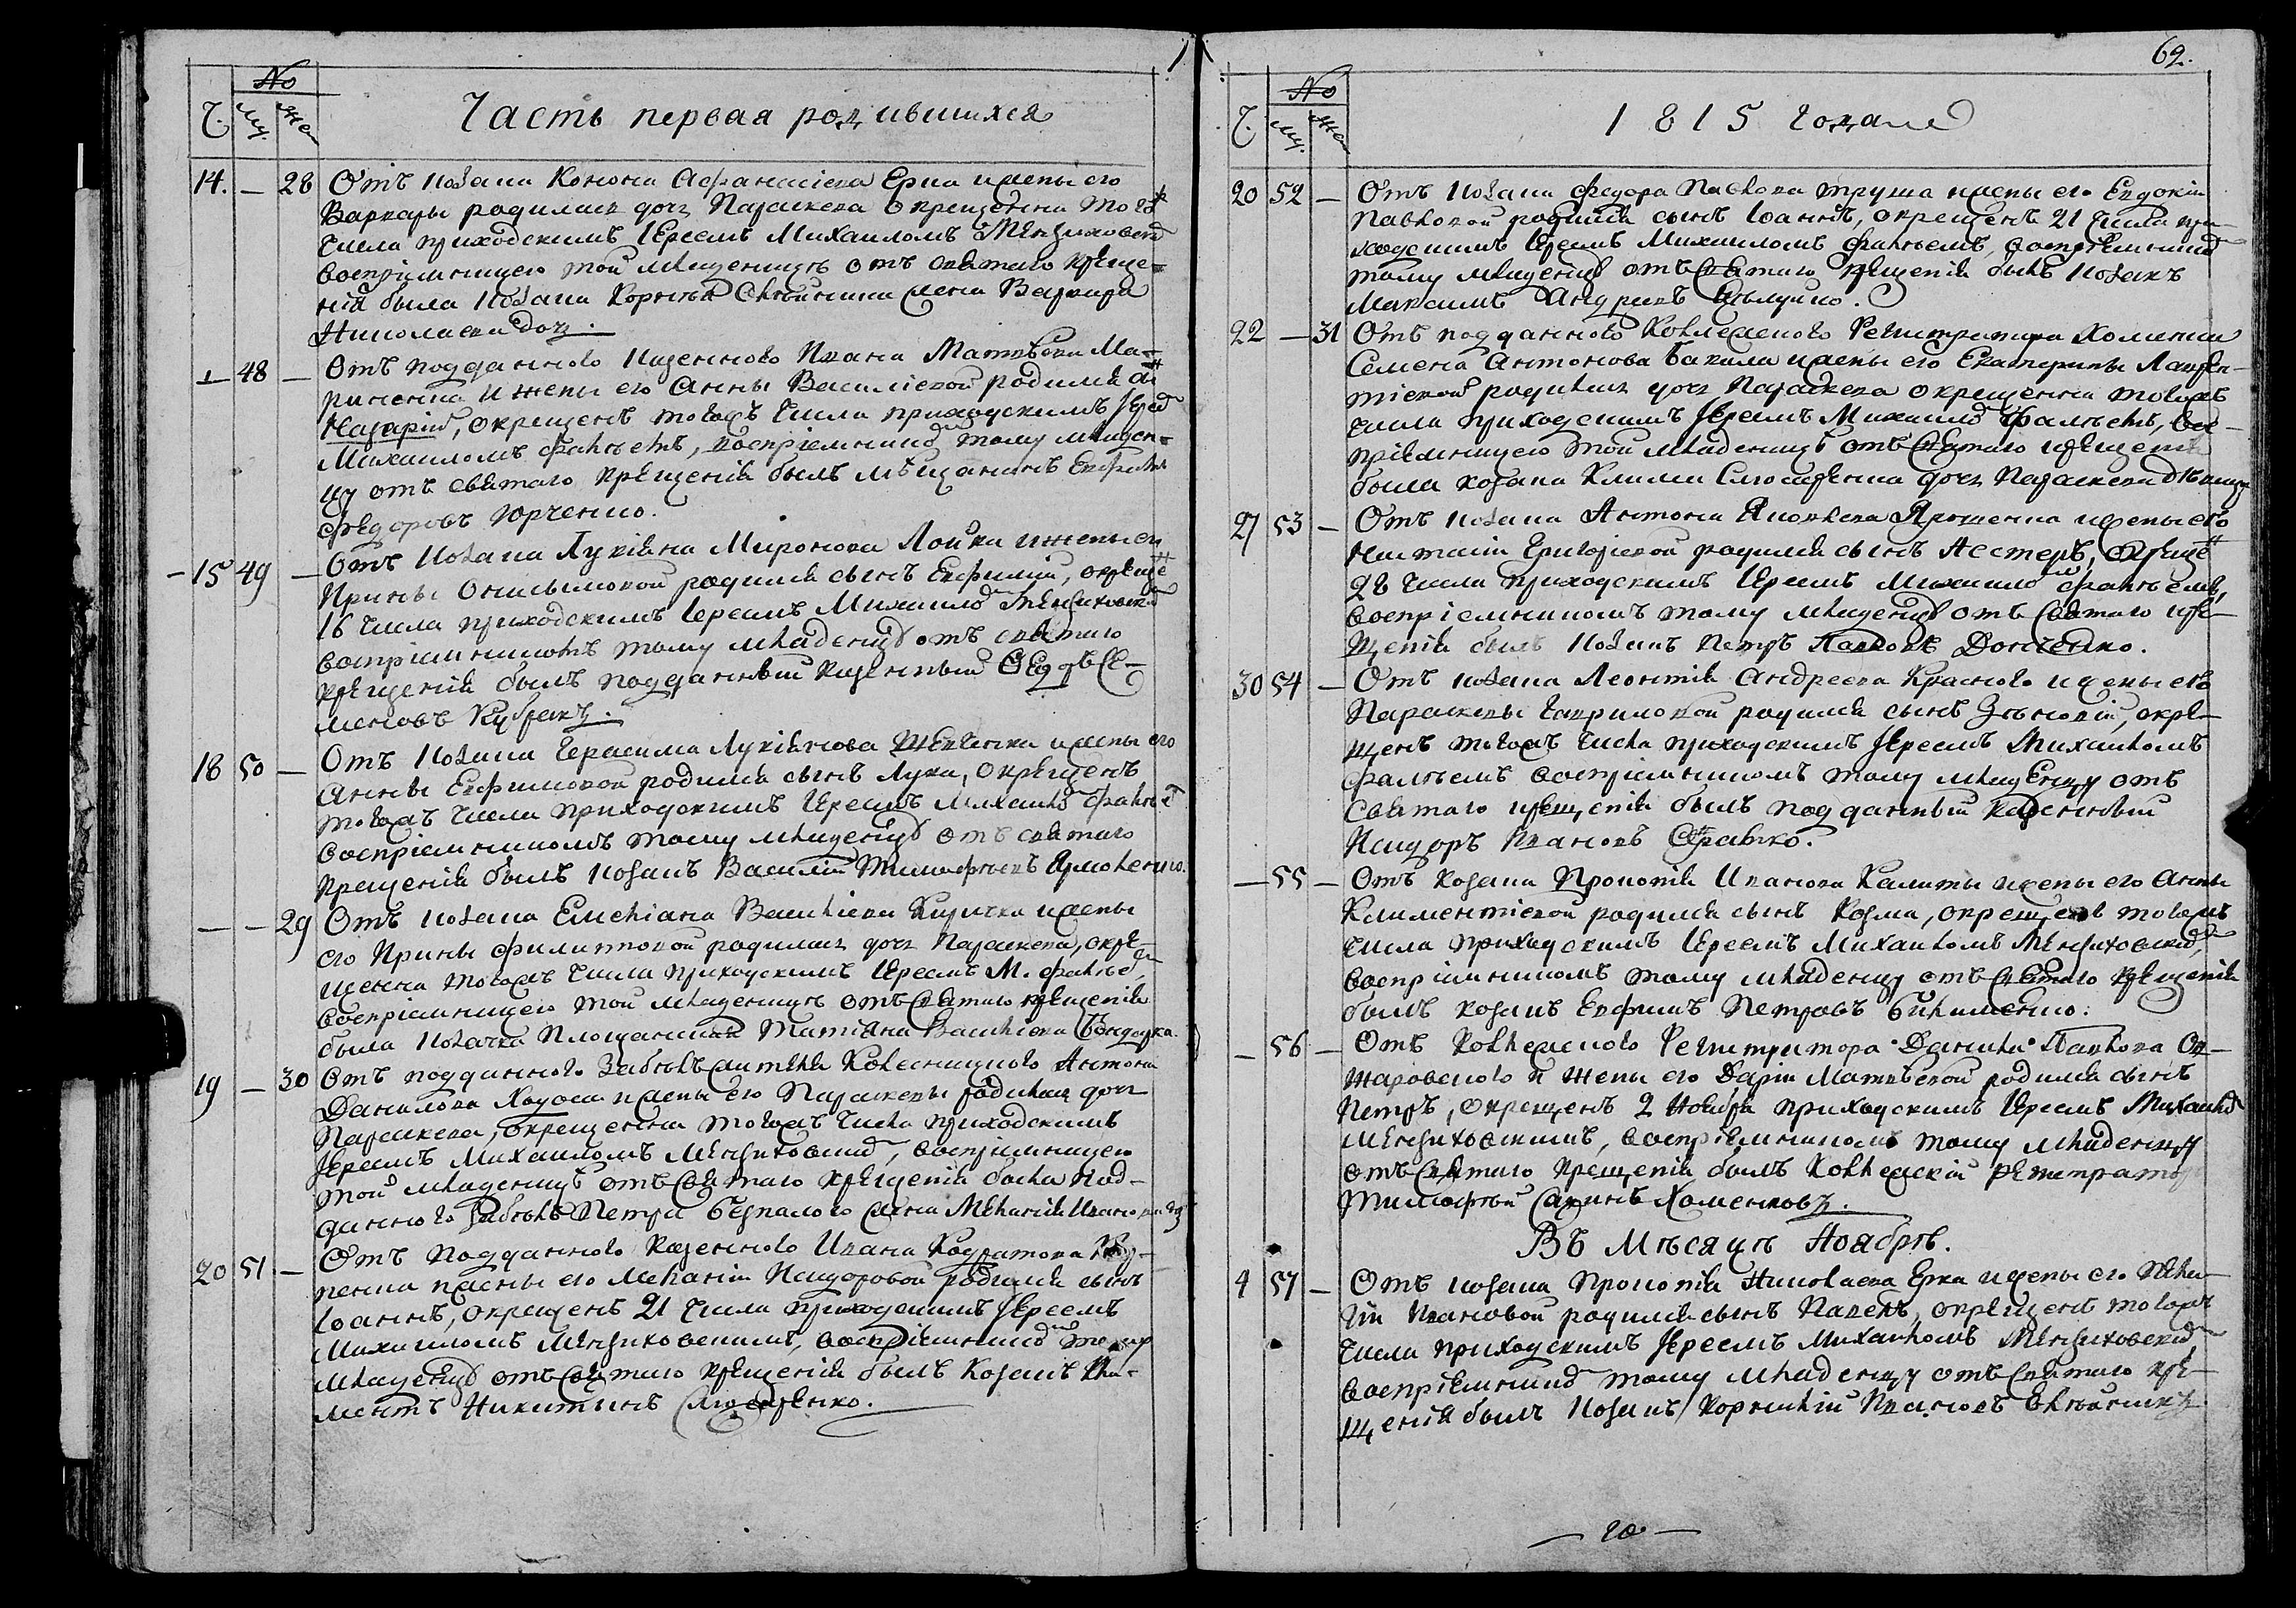 №
Ч. Му. Же
Часть первая родившихся
14. — 28 Отъ козака Конона Афанасіева Ерка ижены его
Варвары родилась дочь Параскева окрещенна тогожъ
числа приходскимъ Іереемъ Михаиломъ
воспріемницею той младеницѣ отъ святаго креще-
нія была козака Корнѣя жена Варвара
Николаева дочь.
— 48 — Отъ подданного казенного Ивана Матвѣева Ма-
риненка и жены его Анны Василіевой родился сынъ
Назарій, окрещенъ тогожъ числа приходскимъ Іереемъ
Михаиломъ Фалѣемъ, воспріемникомъ тому младен-
цу отъ святаго крещенія былъ мѣщанинъ
Федоровъ Юрченко.
— 15 49 — Отъ козака Лукіяна Миронова Лойка ижены его
Ирины Онисимовой родился сынъ Евфимій, окрещенъ
16 числа приходскимъ Іереемъ Михаиломъ
воспріемникомъ тому младенцу отъ святаго
крещенія былъ подданный казенный Федоръ Се-
меновъ Кубракъ.
18 50 — Отъ козака Герасима Лукіянова Шевченка ижены его
Анны Евфимовой родился сынъ Лука, окрещенъ
тогожъ числа приходскимъ Іереемъ Михаиломъ Фалѣемъ
воспріемникомъ тому младенцу отъ святаго
крещенія былъ козакъ Василій Тимофѣевъ Ярмоленко.
— — 29 Отъ козака Емеліана Василіева Киричка ижены
его Ирины Филипповой родилась дочь Параскева, окре-
щенна тогожъ числа приходскимъ Іереемъ М. Фалѣемъ,
воспріемницею той младеницѣ отъ святаго крещенія
была козачка Татіяна Василіева Бондарка.
19 — 30 Отъ подданного Антона
Данилова Хауса ижены его Параскевы родилась дочь
Параскева, окрещенна тогожъ числа приходскимъ
Іереемъ Михаиломъ Мензиховскимъ, воспріемницею
той младеницѣ отъ святаго крещенія была под-
данного Петра Безпалого жена Меланія Иванова
20 51 — Отъ подданного казенного Ивана Кодратова
ижены его Меланіи Исидоровой родился сынъ
Іоаннъ, окрещенъ 21 числа приходскимъ Іереемъ
Михаиломъ Мензиховскимъ, воспріемникомъ тому
младенцу отъ святаго крещенія былъ козакъ Кли-
ментъ Никитинъ Слюсаренко.
62.
№
Ч. Му. Же
1815 года
20 52 — Отъ козака Федора Павлова Труша ижены его Евдокіи
Павловой родился сынъ Іоаннъ, окрещенъ 21 числа при-
ходскимъ Іереемъ Михаиломъ Фалѣемъ, воспріемникомъ
тому младенцу отъ святаго крещенія былъ козакъ
Максимъ Андреевъ
22 — 31 Отъ подданного Коллежского Регистратора Хоменка
Семена Антонова Бакала ижены его Екатерины Лаврен-
тіевой родилась дочь Параскева окрещенна тогожъ
числа приходскимъ Іереемъ Михаиломъ Фалѣемъ, вос-
пріемницею той младеницѣ отъ святаго крещенія
была козака Клима Слюсаренка дочь Параскева дѣвица
27 53 — Отъ козака Антона Яковлева Ярошенка ижены его
Наталіи Григоріевой родился сынъ Нестеръ, окрещенъ
28 числа приходскимъ Іереемъ Михаиломъ Фалѣемъ,
воспріемникомъ тому младенцу отъ святаго кре-
щенія былъ козакъ Петръ Павловъ Донченко.
30 54 — Отъ козака Леонтія Андреева Красного ижены его
Параскевы Гавриловой родился сынъ Зѣновій, окре-
щенъ тогожъ числа приходскимъ Іереемъ Михаиломъ
Фалѣемъ воспріемникомъ тому младенцу отъ
святаго крещенія былъ подданный казенный
Исидоръ Ивановъ
— 55 — Отъ козака Прокопія Иванова Калиты ижены его Анны
Климентіевой родился сынъ Козма, окрещенъ тогожъ
числа приходскимъ Іереемъ Михаиломъ Мензиховскимъ,
воспріемникомъ тому младенцу отъ святаго крещенія
былъ козакъ Евфимъ Петровъ
— 56 — Отъ Коллежского Регистратора Данила Павлова Ов-
жаровского и жены его Даріи Матвѣевой родился сынъ
Петръ, окрещенъ 2 Ноября приходскимъ Іереемъ Михаиломъ
Мензиховскимъ, воспріемникомъ тому младенцу
отъ святаго крещенія былъ Коллежскій Регистраторъ
Тимофѣй Савинъ Хоменковъ.
Въ Мѣсяцѣ Ноябрѣ.
4 57 — Отъ козака Прокопія Николаева Ерка ижены его
Ивановой родился сынъ Павелъ, окрещенъ тогожъ
числа приходскимъ Іереемъ Михаиломъ Мензиховскимъ
воспріемникомъ тому младенцу отъ святаго кре-
щенія былъ козакъ Корнилій Ивановъ